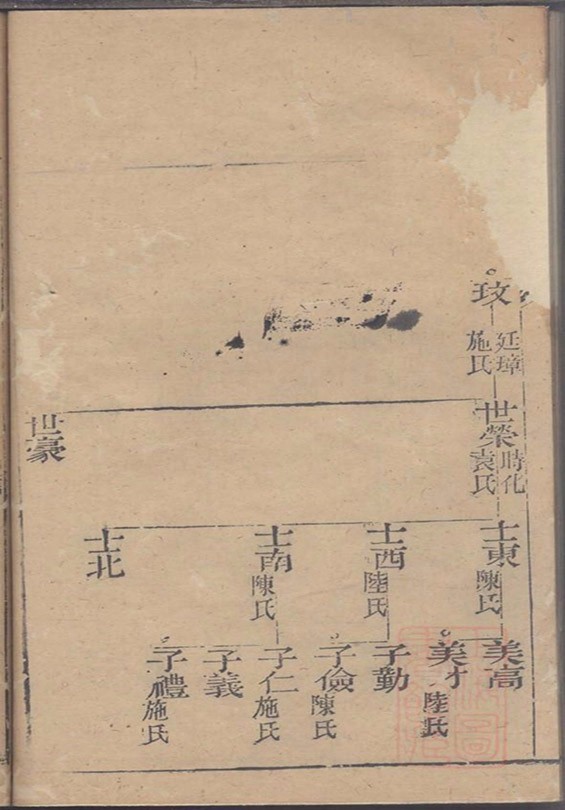 玟
廷璋
施氏
世榮
時化
袁氏
世豪
士東
陳氏
士西
陸氏
士南
陳氏
士北
美高
美才
陸氏
子勤
子儉
陳氏
子仁
施氏
子義
子禮
施氏